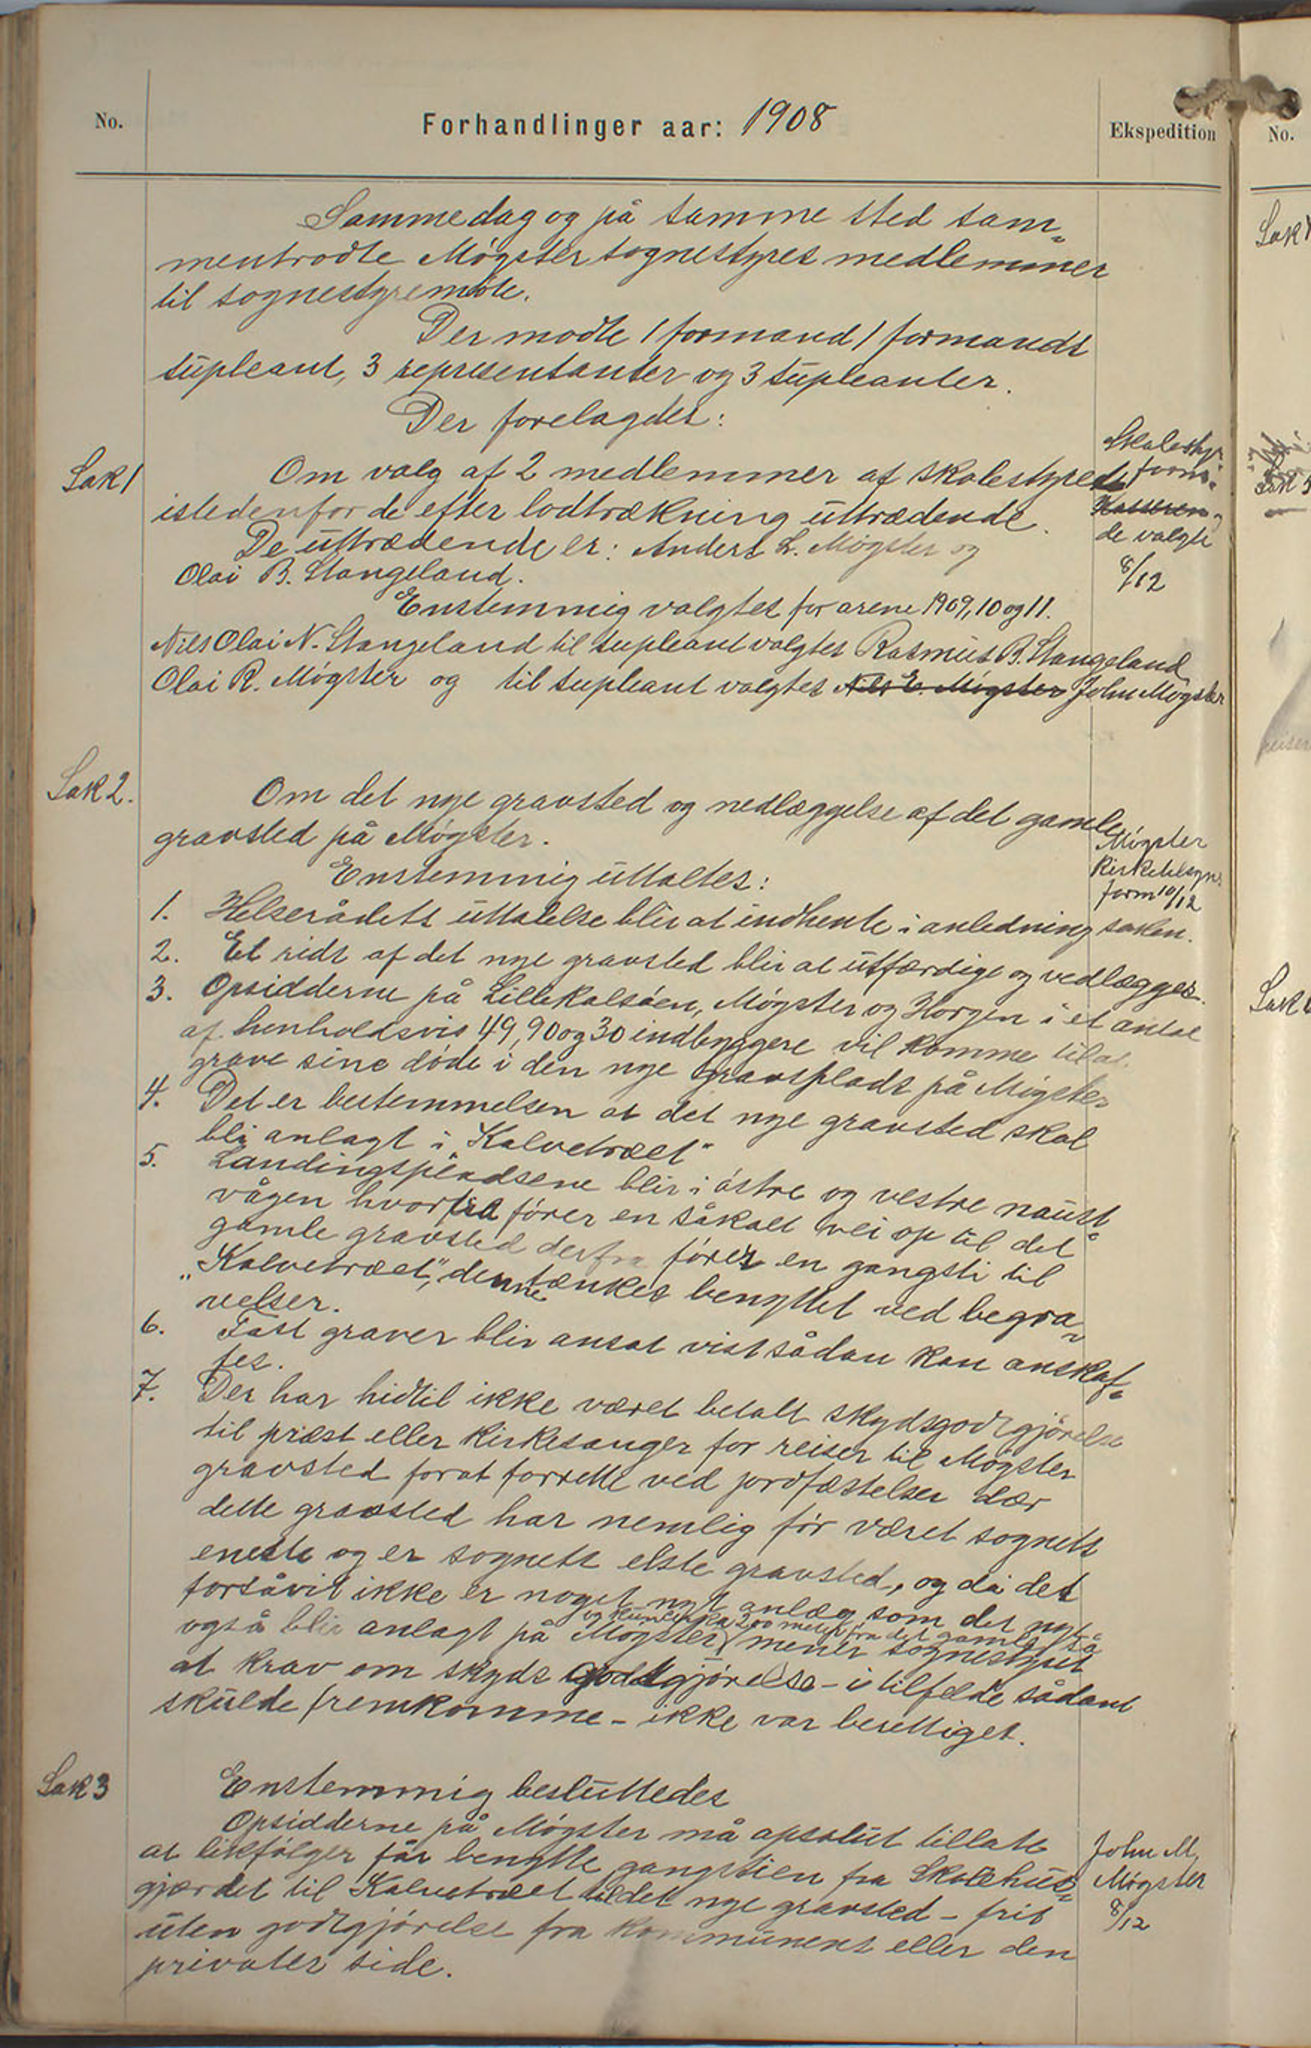 No.
Forhandlinger aar: 1908
Ekspedition
No.
Samme dag og på samme sted sam-
mentrodte Møgster sognestyres medlemmer
til sognestyremöte.
Der mødte 1 formand 1 formands
supleant, 3 representanter og 3 supleanter.
Der forelagdes:
Sak 1
Om valg af 2 medlemmer af skolestyret
istedenfor de efter lodtrækning uttrædende.
De uttrædende er: Anders L. Møgster og
Olai B. Stangeland.
Enstemmig valgtes for årene 1909, 10 og 11.
Nils Olai N. Stangeland til supleant valgtes Rasmus B. Stangeland
Olai R. Møgster og til supleant valgtes Nils E. Møgster John Møgster
Skolesty
form.
Kasseren
de valgte
8/12
Sak 2.
Om det nye gravsted og nedlæggelse af det gamle
gravsted på Møgster.
Enstemmig uttaltes:
Møgster
Kirketilsyns
form 10/12
1. Helserådets uttalelse blir at indhente i anledning saken.
2. Et rids af det nye gravsted blir at utfærdige og vedlægges.
3. Opsidderne på Lillekalsöen, Møgster og Horgen i et antal
af henholdsvis 49, 90 og 30 indbyggere vil komme til at
grave sine döde i den nye gravplads på Møgster
4. Det er bestemmelsen at det nye gravsted skal
bli anlagt i Kalvetræet"
5. Landingspladsene blir i östre og vestre naust-
vågen hvorfra förer en såkalt vei op til det
gamle gravsted derfra förer en gangsti til
„Kalvetræet", denne tænkes benyttet ved begra-
velser.
6. Fast graver blir ansat vist sådan kan anskaf-
fes.
7. Der har hidtil ikke været betalt skydsgodtgjörelse
til præst eller kirkesanger for reiser til Møgster
gravsted forat forrette ved jordfæstelser der
dette gravsted har nemlig för været sognets
eneste og er sognets elste gravsted, og då det
forsåvit ikke er noget nyt anlæg som det nye
og kun cirka 200 meter fra det gamle
også blir anlagt på Møgster mener sognestyret
at krav om skyds godtgjörelse - i tilfelde sådant
skulde fremkomme - ikke var berettiget.
Sak 3
Enstemmig besluttedes
Opsidderne på Møgster må apsolut tillate
at likfölger får benytte gangstien fra Skolehus-
gjærdet til Kalvetræet til det nye gravsted - frit
uten godtgjörelse fra kommunens eller den
privates side.
John M.
Møgster
8/12
Sak
Sak 5
Sak